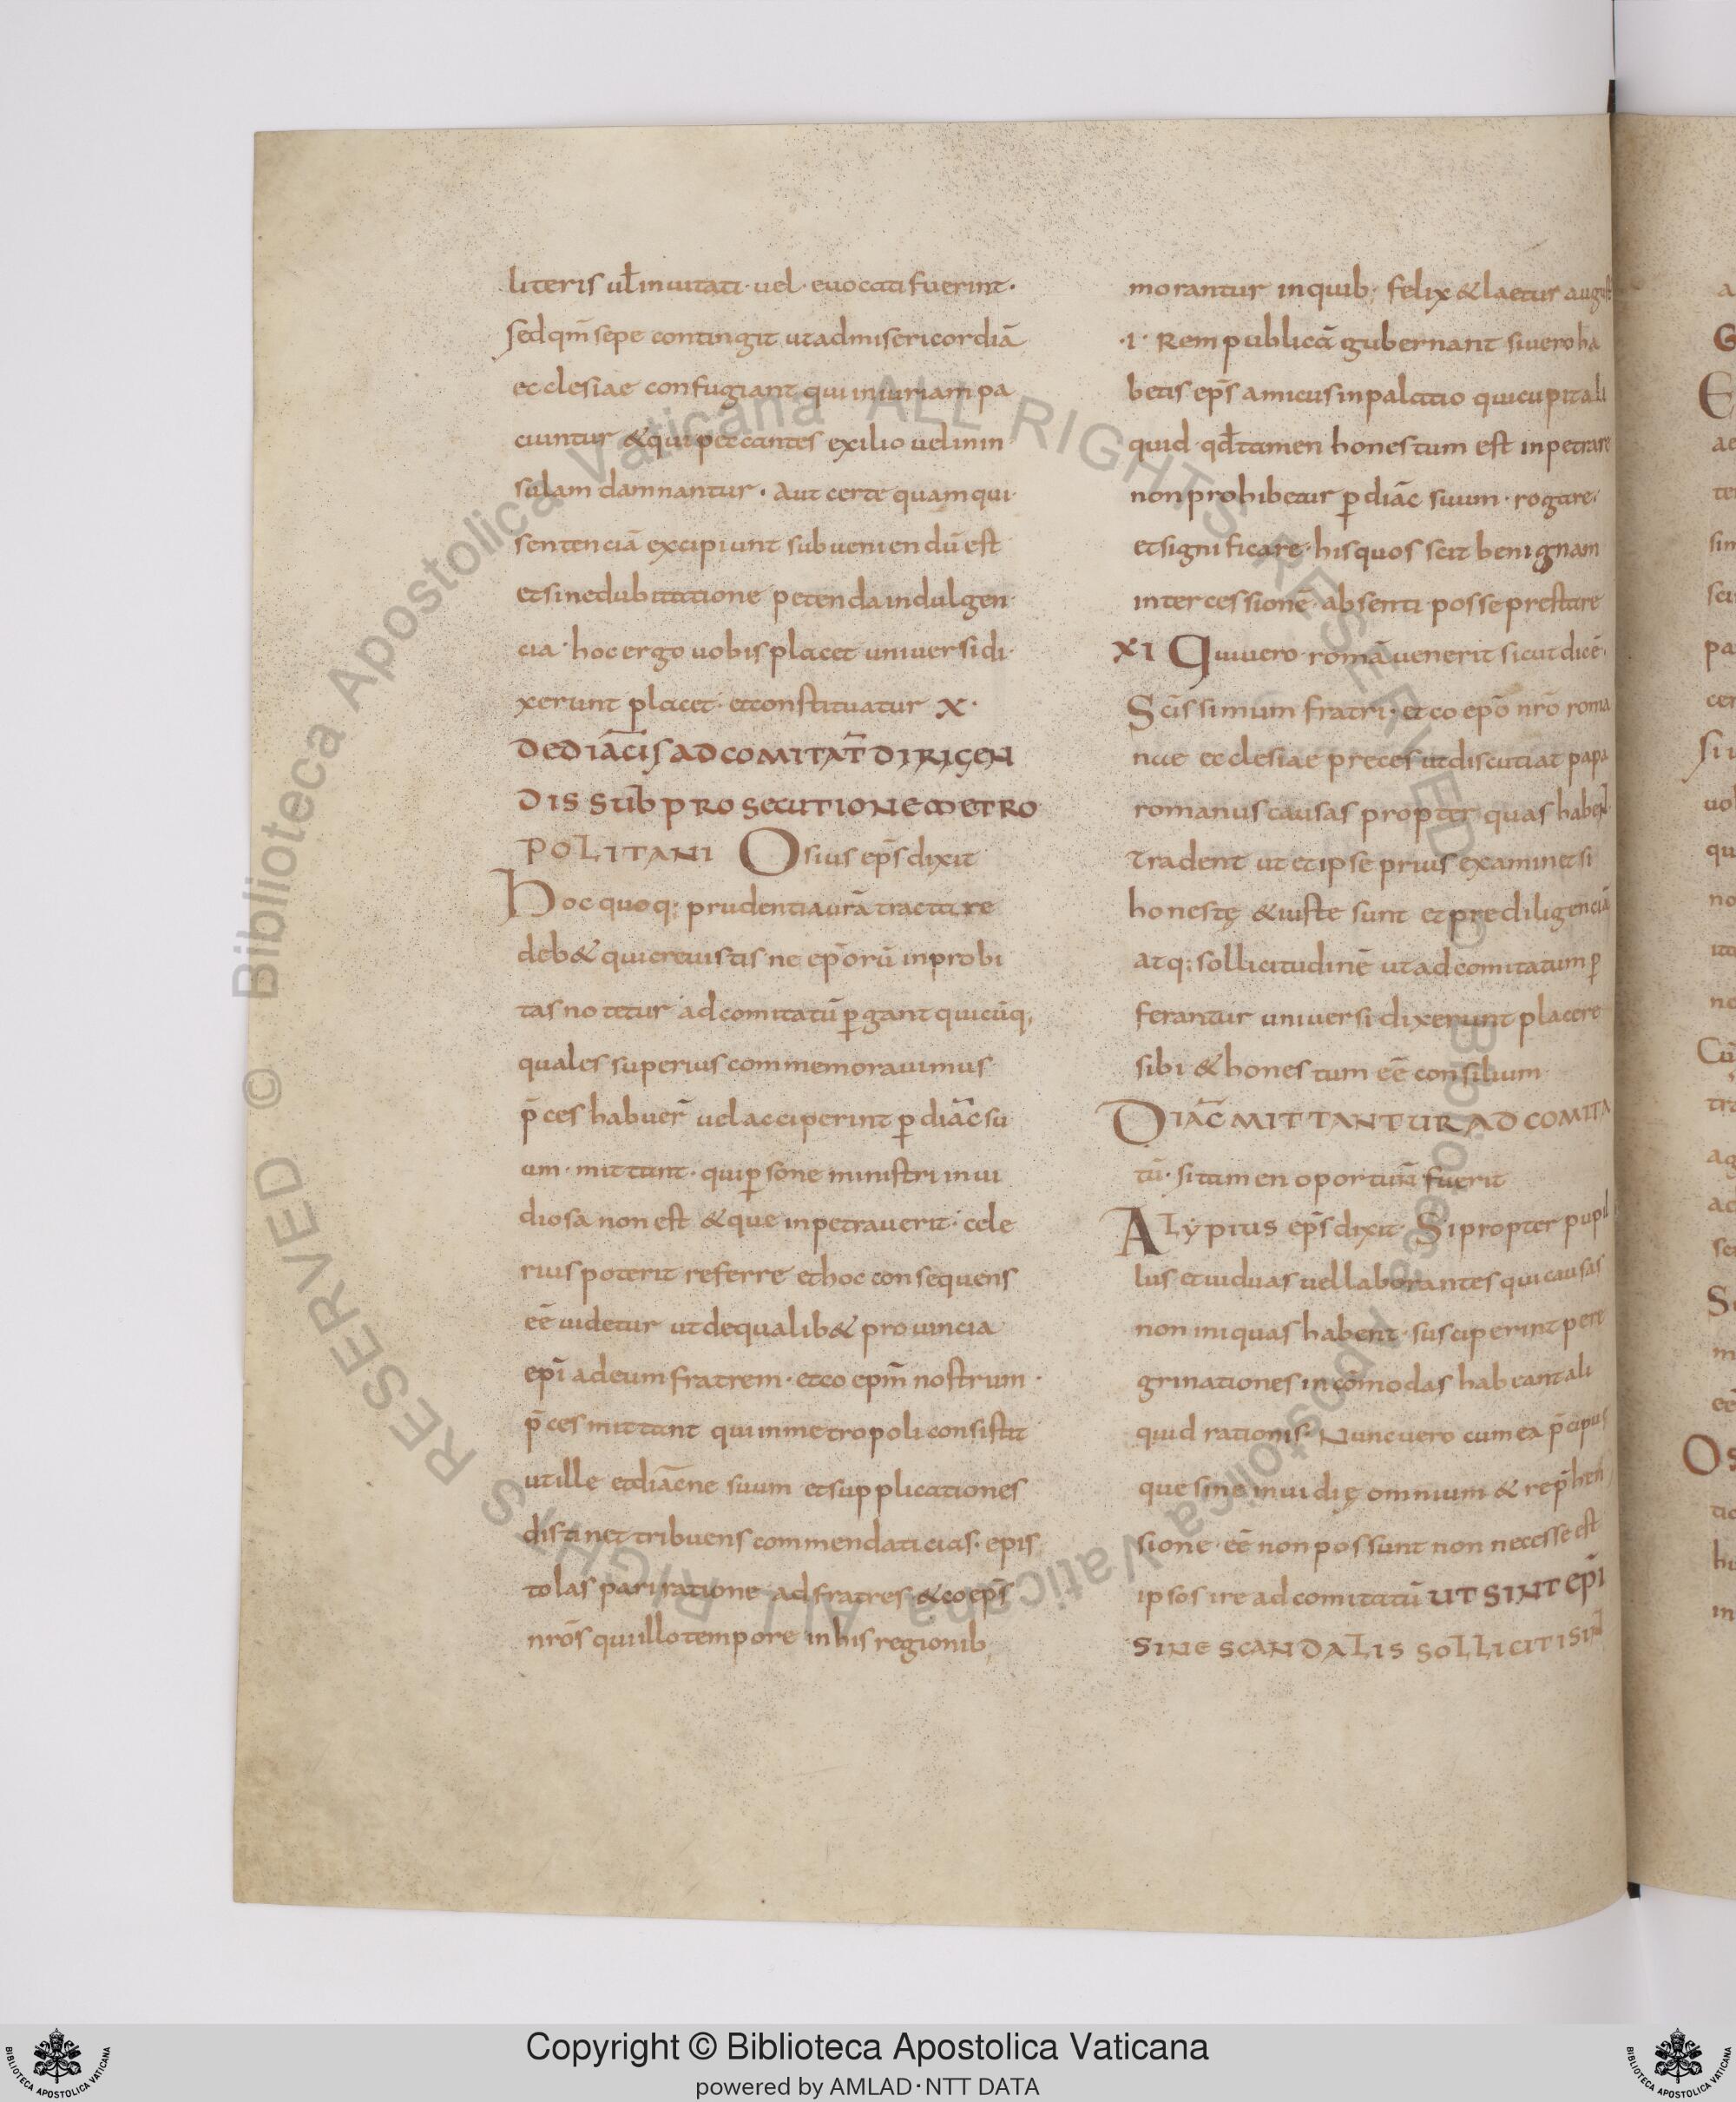 literis ul̄ inuitati · uel · euocati fuerint ·
sed qm̄ sepe contingit ut ad misericordiā
ecclesiae confugiant qui iniuriam pa
ciuntur & qui peccantes exilio uel in in
sulam damnantur · Aut certe quam qui
sentenciā excipiunt subueniendū est
et sine dubitatione petenda indulgen
cia · hoc ergo uobis placet uniuersi di
xerunt placet · et constituatur X ·
DE DIĀCIS AD COMITAT̄ DIRIGEN
DIS SUB PROSECUTIONE METRO
POLITANI Osius ep̄s dixit
Hoc quoq; prudentia ur̄a tractare
deb& quia creuistis ne ep̄orū inprobi
tas notetur ad comitatū ꝑgant quicūq;
quales superius commemorauimus
p̄ces habuer̄ uel acciperint ꝑ diāc su
um · mittant · qui ꝑsone ministri inui
diosa non est & que inpetrauerit · cele
rius poterit referre et hoc consequens
eē uidetur ut de qualib& prouincia
epī ad eum fratrem · et coepm̄ nostrum ·
p̄ces mittant qui in metropoli consistit
ut ille et diāc̄ne suum et supplicationes
distinet tribuens commendaticias · epis
tolas pari ratione ad fratres & coep̄s
nr̄os qui illo tempore in his regionib;
morantur in quib; felix & laetur august
· I · Rem publicā gubernant si uero ha
betis ep̄s amicus in palatio qui cupit ali
quid · qd̄ tamen honestum est inpetrare
non prohibetur ꝑ diāc suum · rogare
et significare · his quos scit benignam
intercessionē · absenti · posse prestare
XI Qui uero romā uenerit sicut dicē
Sc̄issimum fratri · et coepō nr̄o roma
nae ecclesiae preces ut discutiat papa
romanus causas propter quas haben
tradent ut et ipse prius examinet si
honestę & iuste sunt et pre diligenciā
atq; sollicitudinē ut ad comitatum ꝑ
ferantur uniuersi dixerunt placere
sibi & honestum eē consilium
DIĀC MITTANTUR AD COMITA
tū · si tamen oportunū fuerit
Alypius ep̄s dixit Si propter pupil
lus et uiduas uel laborantes qui causas
non iniquas habent · susciperint pere
grinationes incōmodas habeant ali
quid rationis · Nunc uero cum ea p̄cipus
que sine inuidię omnium & rep̄hen
sione · eē non possunt non necesse est
ipsos ire ad comitatū UT SINT EPĪ
SINE SCANDALIS SOLLICITI SINT
Copyright © Biblioteca Apostolica Vaticana
powered by AMLAD·NTT DATA